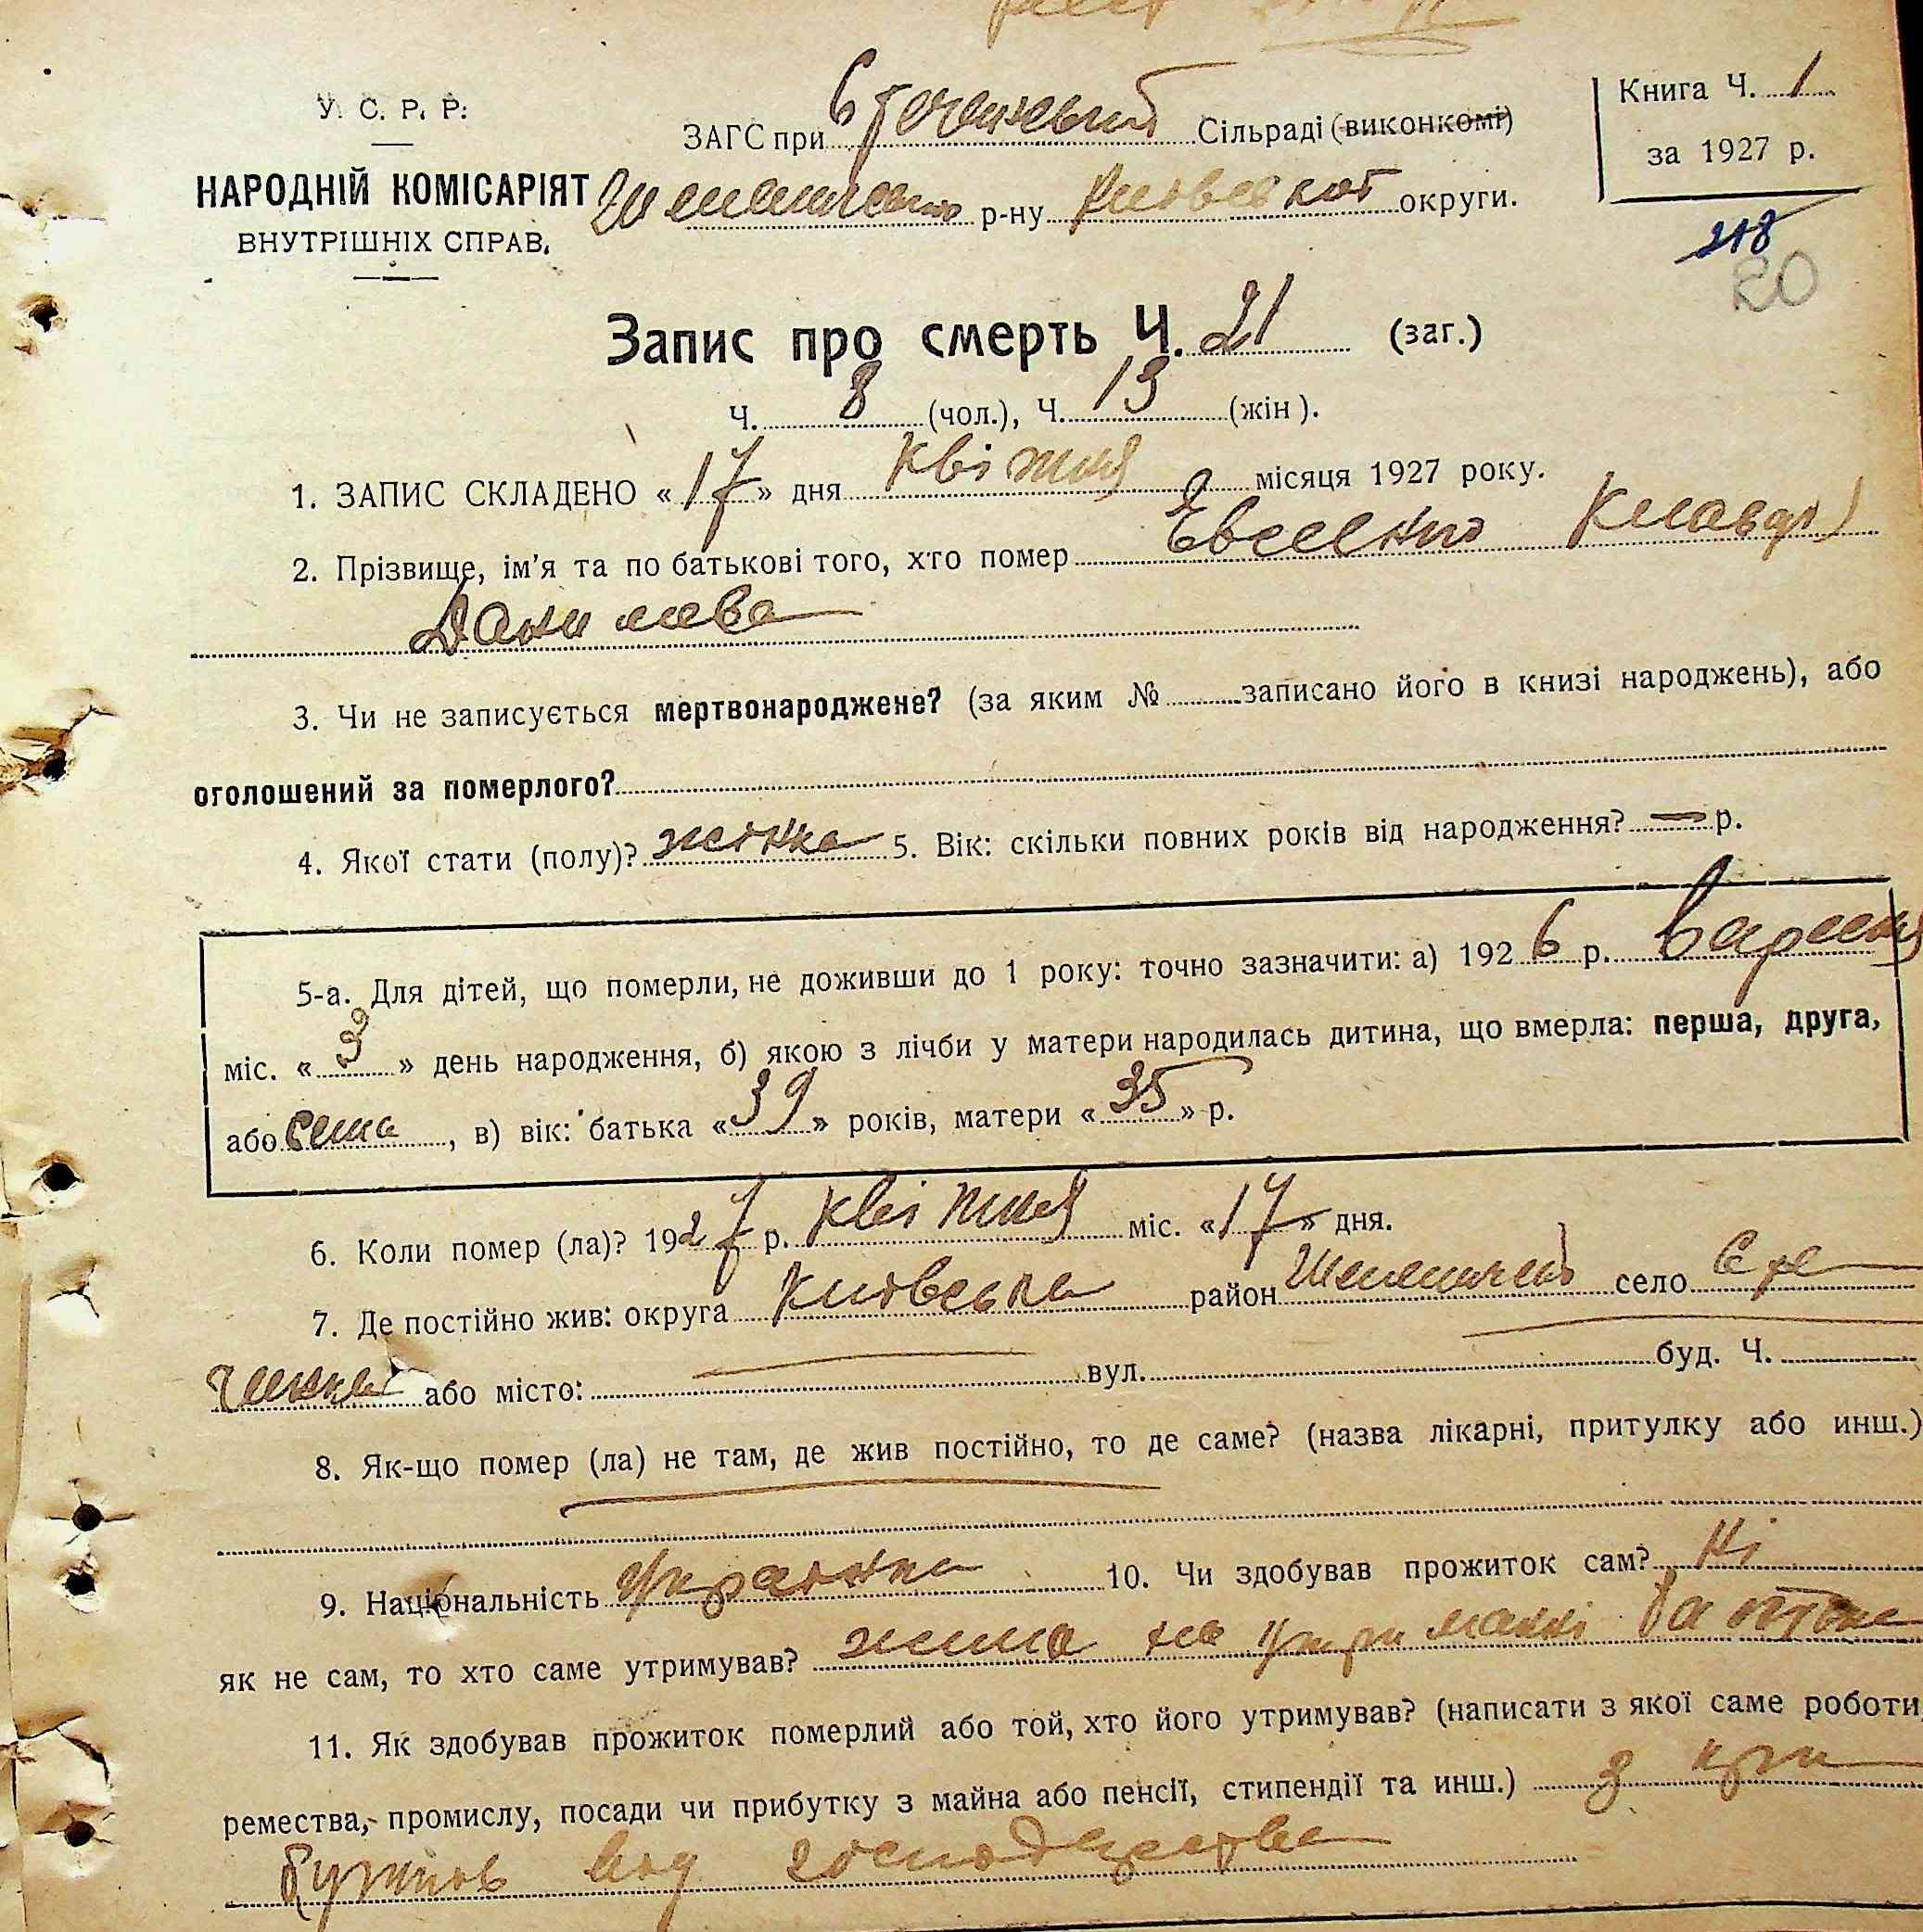 У. С. Р. Р.
ЗАГС при Стечинский Сільраді (виконкомі)
Книга Ч. 1
за 1927 р.
НАРОДНІЙ КОМІСАРІЯТ
ВНУТРІШНІХ СПРАВ.
р-ну Київської округи.
218
20
Запис про смерть Ч. 21 (заг.)
Ч. 8 (чол.), Ч. 13 (жін).
1. ЗАПИС СКЛАДЕНО «17» дня Квітня місяця 1927 року.
2. Прізвище, ім'я та по батькові того, хто помер Евсеенко Клавдя
Данилова
3. Чи не записується мертвонароджене? (за яким № записано його в книзі народжень), або
оголошений за померлого?
4. Якої стати (полу)? жінка 5. Вік: скільки повних років від народження? — р.
5-а. Для дітей, що померли, не доживши до 1 року: точно зазначити: а) 1926 р.
міс. «3» день народження, б) якою з лічби у матери народилась дитина, що вмерла: перша, друга,
або сема, в) вік: батька «39» років, матери «35» р.
6. Коли помер (ла)? 1927 р. Квітня міс. «17» дня.
7. Де постійно жив: округа Київська район село Сте
чинка або місто: вул. буд. Ч.
8. Як-що помер (ла) не там, де жив постійно, то де саме? (назва лікарні, притулку або инш.)
9. Національність Украінка 10. Чи здобував прожиток сам? Ні
як не сам, то хто саме утримував? жила на утриманні батька
11. Як здобував прожиток померлий або той, хто його утримував? (написати з якої саме роботи,
ремества, промислу, посади чи прибутку з майна або пенсії, стипендії та инш.) з при
бутків від господарства